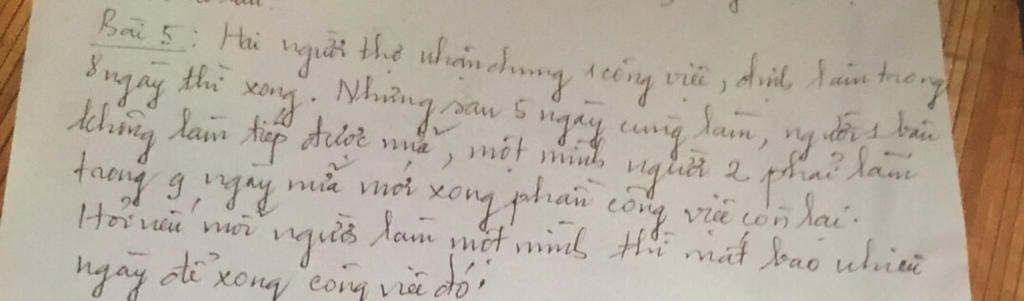 Bài 5: Hai người thợ nhận chung 1 công việc, định làm trong
8 ngày thì xong. Nhưng sau 5 ngày cùng làm, người 1 bận
không làm tiếp được nữa, một mình người 2 phải làm
trong 9 ngày nữa mới xong phần công việc còn lại.
Hỏi nếu mỗi người làm một mình thì mất bao nhiêu
ngày để xong công việc đó?